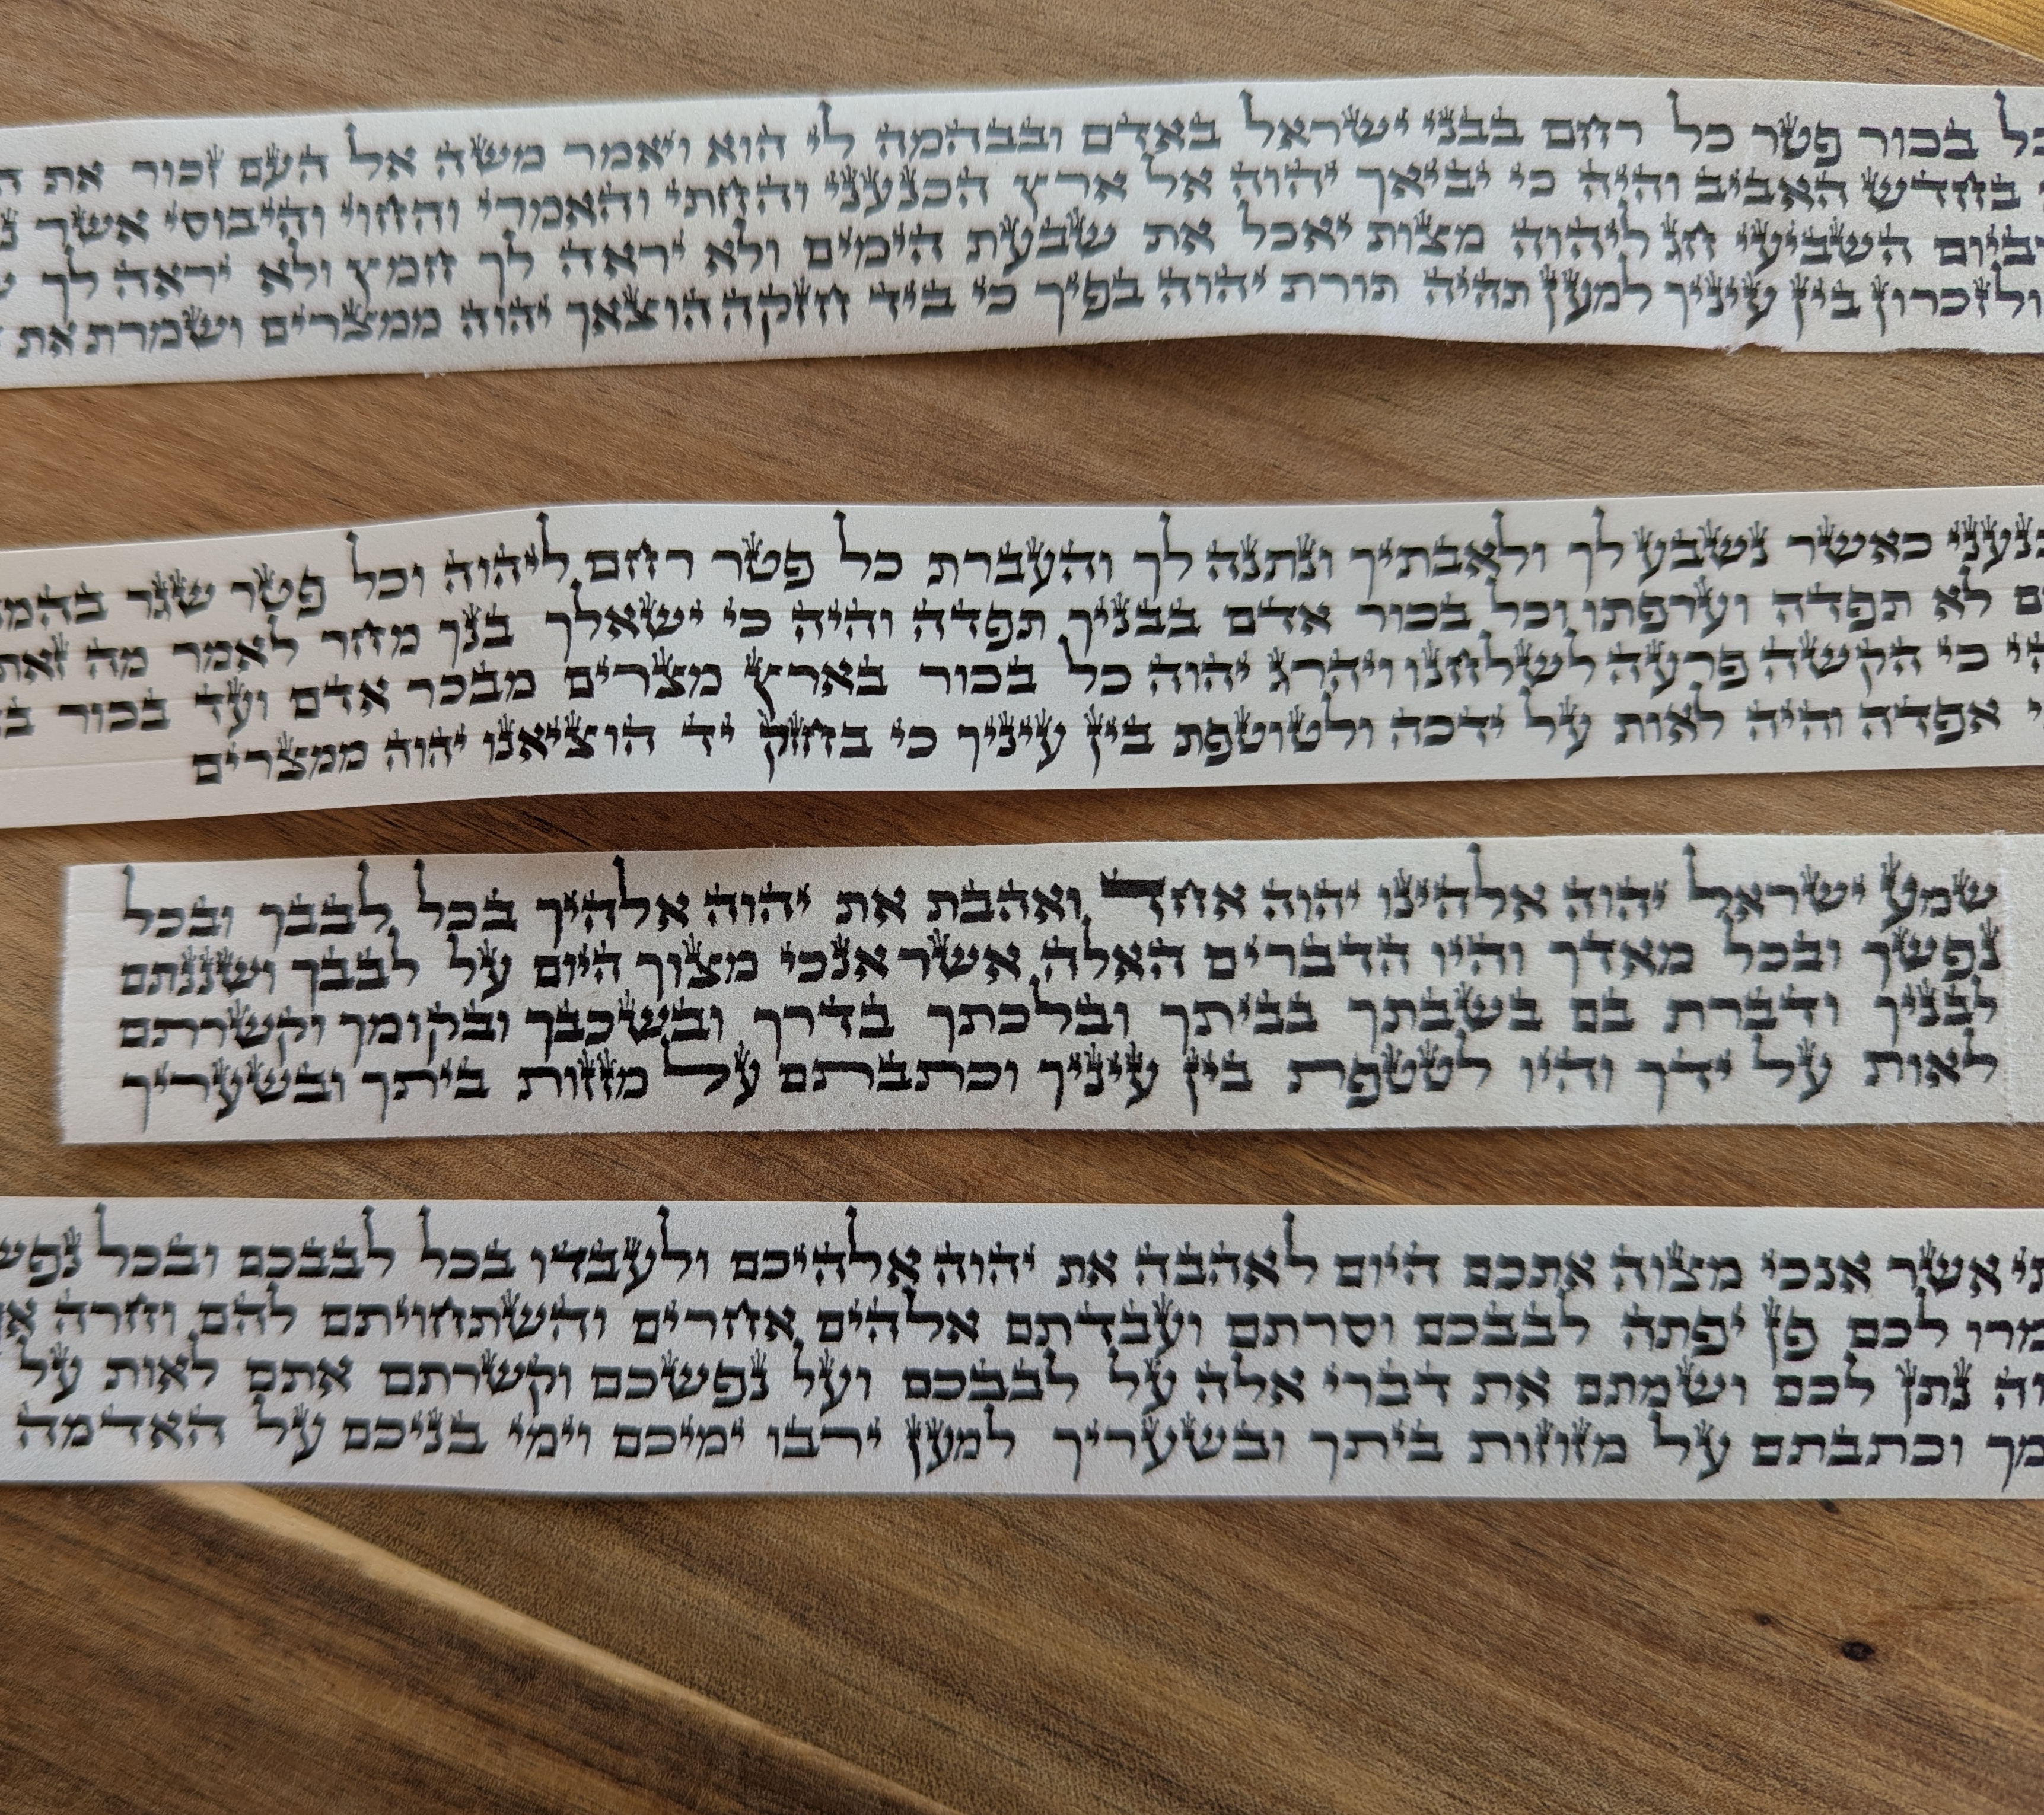 בכור פטר כל רחם בבני ישראל באדם ובבהמה לי הוא ויאמר משה אל העם זכור את
בחדש האביב והיה כי יביאך יהוה אל ארץ הכנעני והחתי והאמרי והחוי והיבוסי אשר
ביום השביעי חג ליהוה מצות יאכל את שבעת הימים ולא יראה לך חמץ ולא יראה לך
ולזכרון בין עיניך למען תהיה תורת יהוה בפיך כי ביד חזקה הוצאך יהוה ממצרים ושמרת את
כאשר נשבע לך ולאבתיך ונתנה לך והעברת כל פטר רחם ליהוה וכל פטר שגר
לא תפדה וערפתו וכל בכור אדם בבניך תפדה והיה כי ישאלך בנך מחר לאמר מה זאת
כי הקשה פרעה לשלחנו ויהרג יהוה כל בכור בארץ מצרים מבכר אדם ועד בכור
אפדה והיה לאות על ידכה ולטוטפת בין עיניך כי בחזק יד הוציאנו יהוה ממצרים
שמע ישראל יהוה אלהינו יהוה אחד ואהבת את יהוה אלהיך בכל לבבך ובכל
נפשך ובכל מאדך והיו הדברים האלה אשר אנכי מצוך היום על לבבך ושננתם
לבניך ודברת בם בשבתך בביתך ובלכתך בדרך ובשכבך ובקומך וקשרתם
לאות על ידך והיו לטטפת בין עיניך וכתבתם על מזזות ביתך ובשעריך
אשר אנכי מצוה אתכם היום לאהבה את יהוה אלהיכם ולעבדו בכל לבבכם ובכל
לכם פן יפתה לבבכם וסרתם ועבדתם אלהים אחרים והשתחויתם להם וחרה
נתן לכם ושמתם את דברי אלה על לבבכם ועל נפשכם וקשרתם אתם לאות על
וכתבתם על מזוזות ביתך ובשעריך למען ירבו ימיכם וימי בניכם על האדמה